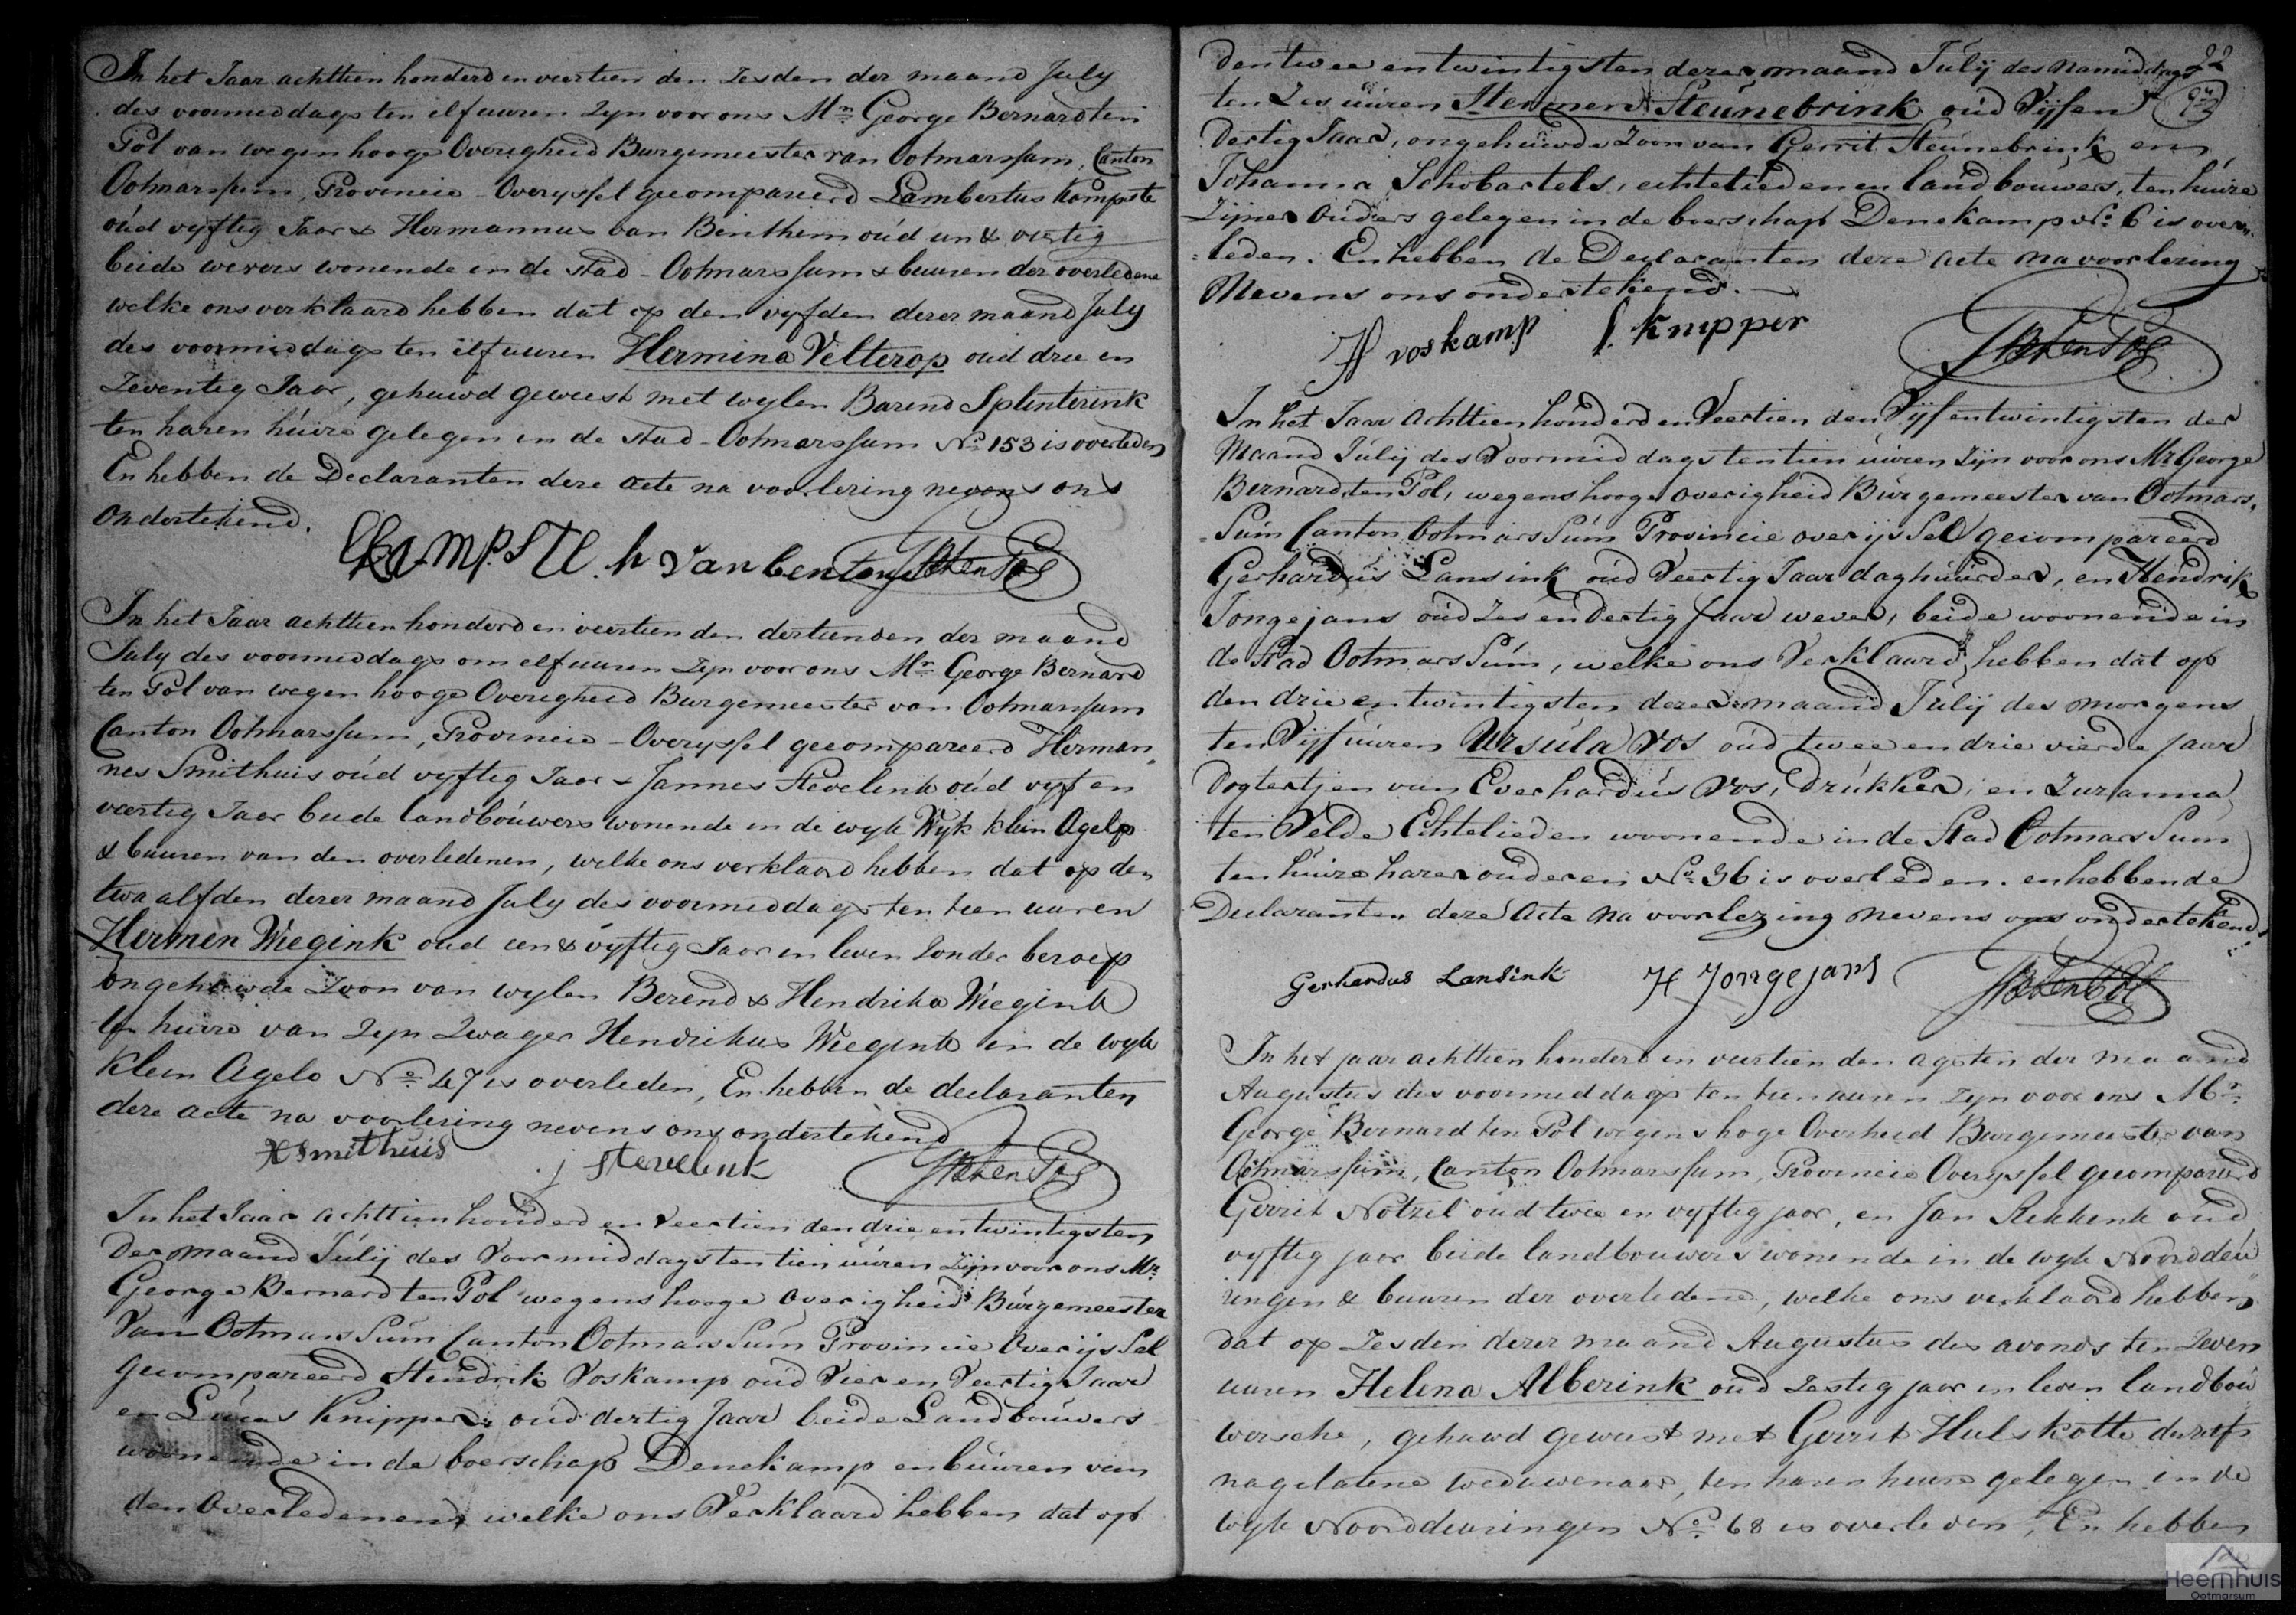 In het Jaar achttien honderd en veertien den Zesden der maand July
des voormiddags ten elf uuren zyn voor ons Mr. George Bernard ten
Pol van wegen hooge Overigheid Burgemeester van Ootmarssum, Canton
Ootmarssum, Provincie Overyssel gecompareerd Lambertus Kampste
oud vyftig Jaar & Hermannus van Benthem oud een & veertig
beide wevers wonende in de stad Ootmarssum & buuren der overledene
welke ons verklaard hebben dat op den vyfden dezer maand July
des voormiddags ten elf uuren Hermina Velterop oud drie en
Zeventig Jaar, gehuwd geweest met wylen Barend Splinterink
ten haren huize gelegen in de stad Ootmarssum No. 153 is overleden
En hebben de Declaranten deze acte na voorlezing nevens ons
ondertekend.
LKAMPSTE h van bentem GBtenPol
In het Jaar achttien honderd en veertien den dertienden der maand
July des voormiddags om elf uuren zyn voor ons Mr. George Bernard
ten Pol van wegen hooge Overigheid Burgemeester van Ootmarssum
Canton Ootmarssum, Provincie Overyssel gecompareerd Herman„
nes Smithuis oud vyftig Jaar & Jannes Stevelink oud vyf en
veertig Jaar beide landbouwers wonende in de wyk Wyk klein Agelo
& buuren van den overledenen, welke ons verklaard hebben dat op den
twaalfden dezer maand July des voormiddags ten tien uuren
Hermen Wiegink oud een & vyftig Jaar in leven zonder beroep
ongehuwde Zoon van wylen Berend & Hendrika Wiegink
ten huize van zyn Zwager Hendrikus Wiegink in de wyk
klein Agelo No. 47 is overleden, En hebben de declaranten
deze acte na voorlezing nevens ons ondertekend
H smithuis j stevelink GBtenPol
In het Jaar achttien honderd en Veertien den drie en twintigsten
Der maand Julij des Voormiddags ten tien uuren zijn voor ons Mr.
George Bernard ten Pol wegens hooge Overigheid Burgemeester
Van Ootmarssum Canton Ootmarssum Provincie Overijssel
gecompareerd Hendrik Voskamp oud Vier en Veertig Jaar
en Lucas Knipper, oud dertig Jaar beide Landbouwers
woonende in de boerschap Denekamp en buuren van
den Overledenen, welke ons Verklaard hebben dat op
22
den twee en twintigsten dezer maand Julij des namiddags
ten Zes uuren Hermen Steunebrink oud Vijf en
Dertig Jaar, ongehuwde Zoon van Gerrit Steunebrink en
Johanna Schobartels, echtelieden en landbouwers, ten huize
Zijner Ouders gelegen in de boerschap Denekamp No. 6 is over
=leden. En hebben de Declaranten deze acte na voorlezing
Nevens ons ondertekend.
H voskamp L. Knipper GBtenPol
In het Jaar Achttien honderd en Veertien den Vijf en twintigsten der
Maand Julij des Voormiddags ten tien uuren zijn voor ons Mr George
Bernard ten Pol, wegens hooge overigheid Burgemeester van Ootmars„
=Sum Canton Ootmarssum Provincie overijssel gecompareerd
Gerhardus Lansink oud Veertig Jaar daghuurder, en Hendrik
Jongejans oud Zes en Dertig Jaar wever, beide woonende in
de Stad Ootmarssum, welke ons Verklaard hebben dat op
den drie en twintigsten dezer maand Julij des morgens
ten Vijf uuren Ursula Vos oud twee en drie vierde jaar
Dogtertjen van Everhardus Vos, Drukker, en Zuzanna
ten Velde Echtelieden woonende in de Stad Ootmarssum
ten huize harer ouderen No. 36 is overleden. en hebben de
Declaranten deze Acte na voorlezing nevens ons ondertekend
Gerhardus Lansink H Jongejans GBtenPol
In het jaar achttien honderd en veertien den agsten der maand
Augustus des voormiddags ten tien uuren zyn voor ons Mr.
George Bernard ten Pol wegens hoge Overheid Burgemeester van
Ootmarssum, Canton Ootmarssum, Provincie Overyssel gecompareerd
Gerrit Notzel oud twee en vyftig jaar, en Jan Rekkenk oud
vyftig jaar beide landbouwers wonende in de wyk Noorddeu
ringen & buuren der overledene, welke ons verklaard hebben
dat op Zesden dezer maand Augustus des avonds ten Zeven
uuren Helena Alberink oud Zestig jaar in leven landbou
wersche, gehuwd geweest met Gerrit Hulskotte dezelfs
nagelatene weduwenaar, ten haren huize gelegen in de
wyk Noorddeuringen No. 68 is overleden, En hebben
Heemhuis
Ootmarsum